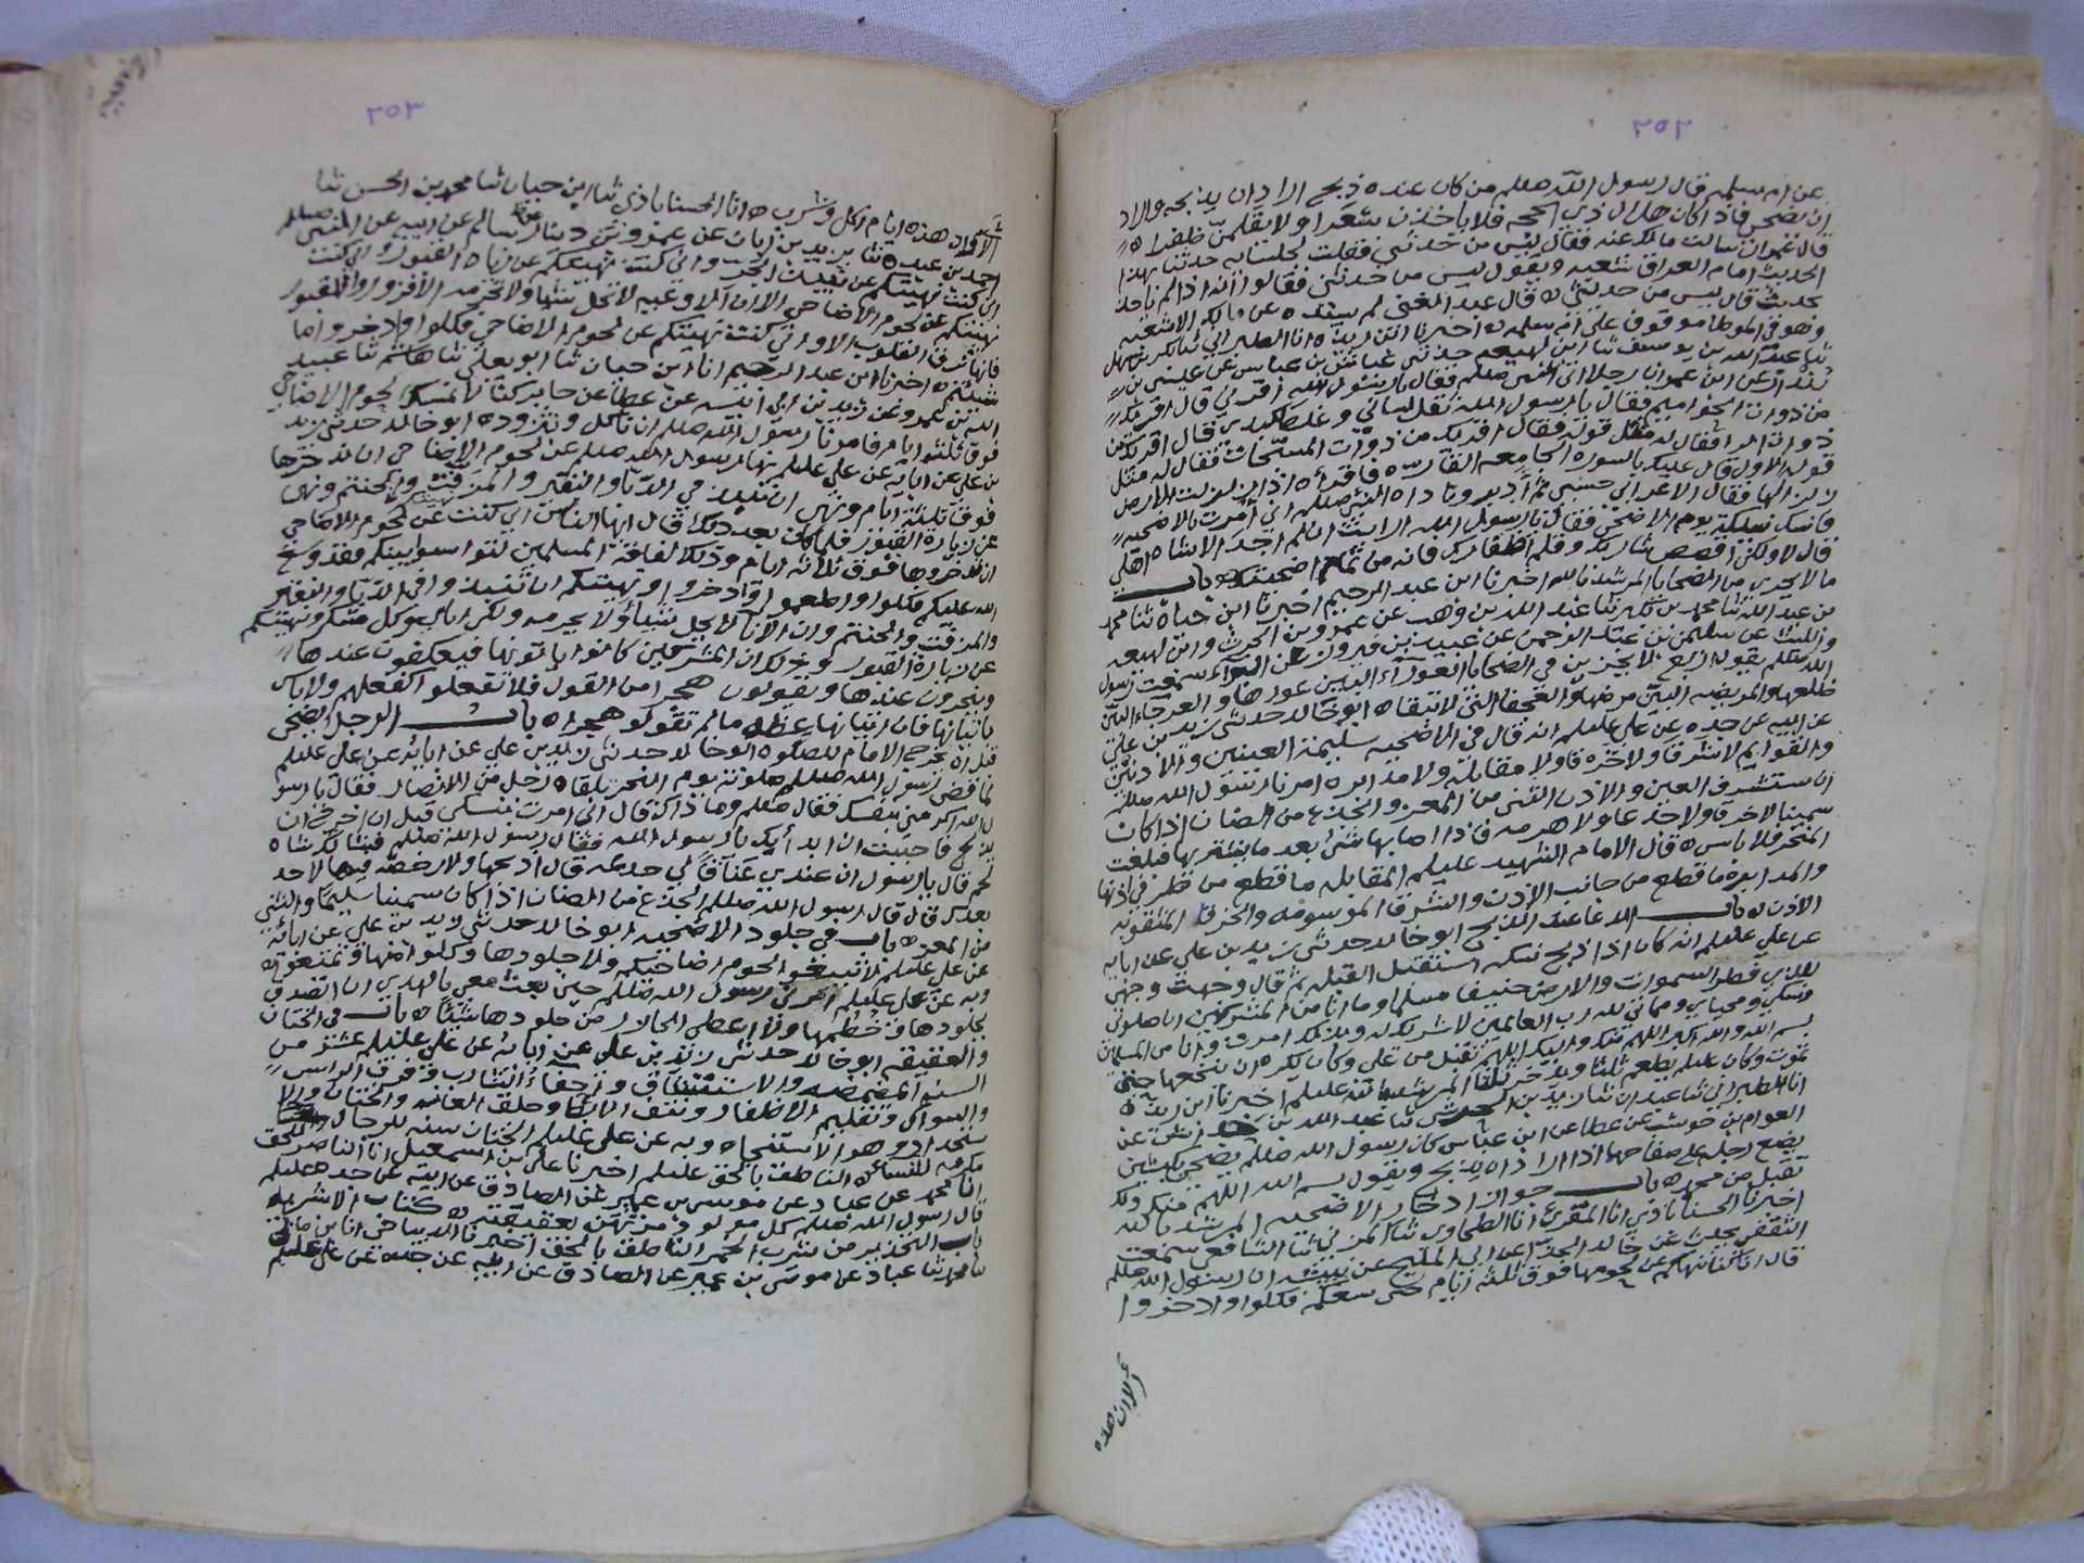 ٢٥٢
عن ام سلمه قال رسول الله صللم من كان عنده ذبح اراد ان يذبحه واراد
ان يضحي فاذا كان هلال ذي الحجه فلا ياخذن شعرا ولا يقلمن ظفرا ه
قال عمران سالت مالك عنه فقال ليس من حدثني فقلت لجلسايه حدثنا بهذا
الحديث امام العراق شعبه ويقول ليس من حدثني فقالوا انه اذا لم ياخذ
بحديث قال ليس من حدثني ه قال عبد المغني لم يسنده عن مالك الا شعبه
وهو في الموطا موقوف على ام سلمه ه اخبرنا ابن ريذه انا الطبراني ثنا بكر بن سهل
ثنا عبد الله بن يوسف ثنا ابن لهيعه حدثني عياش بن عباس عن عيسى بن
عن ابن عمرو ان رجلا اتى النبي صللم فقال يا رسول الله اقرئني قال اقرئك
من ذوات الحواميم فقال يا رسول الله ثقل لساني وغلظ قال اقرئك من
ذوات الر فقال له مثل قوله فقال اقريك من ذوات المسبحات فقال له مثل
قوله الاول قال عليك بالسوره الجامعه الفاذه فاقراه اذا زلزلت الارض
زلزالها فقال الاعرابي حسبي ثم ادبر وناداه النبي صللم اني امرت بالاضحيه
فانسك نسيكة يوم الاضحى فقال يا رسول الله ارايت ان لم اجد الا شاه اهلي
قال لا ولكن اقصص شاربك وقلم اظفارك فانه من تمام اضحيتك ه باب
ما لا يجزي من الضحايا المرشد بالله اخبرنا ابن عبد الرحيم اخبرنا ابن حيان ثنا محمد
بن عبد الله ثنا محمد بن ثنا عبد الله بن وهب عن عمرو بن الحرث وابن لهيعه
والليث عن سليمن بن عبد الرحمن عن عبيد بن فيروز عن البراء سمعت رسول
الله صللم يقول اربع لا يجزين في الضحايا العوراء البين عورها والعرجاء البين
ظلعها والمريضه البين مرضها والعجفا التي لا تنقا ه ابو خالد حدثني زيد بن علي
عن ابيه عن جده عن علي عليلم انه قال في الاضحيه سليمة العينين والاذنين
والقوايم لا شرقا ولا خرقا ولا مقابلة ولا مدابره امرنا رسول الله صللم
ان نستشرف العين والاذن الثني من المعز والجذع من الضان اذا كان
سمينا لا خرقا ولا جذعا ولا هرمه فاذا اصابها شئ بعد ما يشتريها فبلغت
المنحر فلا باس ه قال الامام الشهيد عليلم المقابله ما قطع من طرف اذنها
والمدابره ما قطع من جانب الاذن والشرقا الموسومه والخرقا المثقوبه
الاذن ه باب الدعا عند الذبح ابو خالد حدثني زيد بن علي عن ابايه
عن علي عليلم انه كان اذا ذبح نسكه استقبل القبله ثم قال وجهت وجهي
للذي فطر السموات والارض حنيفا مسلما وما انا من المشركين ان صلوتي
ونسكي ومحياي ومماتي لله رب العالمين لا شريك له وبذلك امرت وانا من المسلمين
بسم الله والله اكبر اللهم منك واليك اللهم تقبل من علي وكان يكره ان ينخعها حتى
تموت وكان عليلم يطعم ثلثا ويدخر ثلثا المرشد بالله عليلم اخبرنا ابن ريذه
انا الطبراني ثنا عبدان ثنا زيد بن الحريش ثنا عبد الله بن عن
العوام بن حوشب عن عطا عن ابن عباس كان رسول الله صللم يضحي بكبشين
يضع رجله على صفاحهما اذا اراد ان يذبح ويقول بسم الله اللهم منك ولك
تقبل من محمد ه باب جواز ادخار الاضحيه المرشد بالله
اخبرنا الحسناباذي انا المقرئ انا الطحاوي ثنا المزني ثنا الشافعي سمعت
الثقفي يحدث عن خالد الحذا عن ابي المليح عن نبيشه ان رسول الله صللم
قال انا كنا نهيناكم عن لحومها فوق ثلثه ايام حتى تسعكم فكلوا وادخروا
الا وان هذه
٢٥٣
الا وان هذه ايام اكل وشرب ه انا الحسناباذي ثنا ابن حيان ثنا محمد بن الحسن ثنا
احمد بن عبده ثنا يزيد بن ابان عن عمرو بن دينار عن سالم عن ابيه عن النبي صللم
اني كنت نهيتكم عن نبيذ الجر واني كنت نهيتكم عن زياره القبور واني كنت
نهيتكم عن لحوم الاضاحي الا ان الاوعيه لا تحل شيئا ولا تحرمه الا فزوروا القبور
فانها ترق القلوب الا واني كنت نهيتكم عن لحوم الاضاحي فكلوا وادخروا ما
شيتم ه اخبرنا ابن عبد الرحيم انا ابن حيان ثنا ابو يعلى ثنا هاشم ثنا عبيد
الله بن عمرو عن زيد بن ابي انيسه عن عطا عن جابر كنا لا نمسك لحوم الاضاحي
فوق ثلثه ايام فامرنا رسول الله صللم ان ناكل ونتزود ه ابو خالد حدثني زيد
بن علي عن ابايه عن علي عليلم نهى رسول الله صللم عن لحوم الاضاحي ان ندخرها
فوق ثلثة ايام ونهى ان ننبذ في الدبا والنقير والمزفت والحنتم ونهى
عن زيارة القبور فلما كان بعد ذلك قال ايها الناس اني كنت نهيتكم عن لحوم الاضاحي
ان تدخروها فوق ثلاثه ايام وذلك لفاقة المسلمين لتواسوا بينكم فقد وسع
الله عليكم فكلوا واطعموا وادخروا ونهيتكم ان تنبذوا في الدبا والنقير
والمزفت والحنتم وان الانا لا يحل شيئا ولا يحرمه ولكن اياكم وكل مسكر ونهيتكم
عن زيارة القبور وذلك ان المشركين كانوا ياتونها فيعكفون عندها
وينحرون عندها ويقولون هجرا من القول فلا تفعلوا كفعلهم ولا باس
باتيانها فان اتيانها عظه ما لم تقولوا هجرا ه باب الرجل يضحي
قبل ان يخرج الامام للصلوه ابو خالد حدثني زيد بن علي عن ابايه عن علي عليلم
لما قضى رسول الله صللم صلوته يوم النحر تلقاه رجل من الانصار فقال يا رسول
الله اكرمني بنفسك فقال صللم وما ذاك قال اني امرت بنسكي قبل ان اخرج ان
يذبح فاحببت ان ابدأ بك يا رسول الله فقال رسول الله صللم فشاتك شاة
لحم قال يا رسول الله ان عندي عناقا لي جذعه قال اذبحها ولا رخصه فيها لاحد
بعدك قال قال رسول الله صللم الجذع من الضان اذا كان سمينا سليما والثني
من المعز ه باب في جلود الاضحيه ابو خالد حدثني زيد بن علي عن ابائه
عن علي عليلم لا تبيعوا لحوم اضاحيكم ولا جلودها وكلوا منها وتمتعوا ه
وبه عن علي عليلم امرني رسول الله صللم حين بعث معي بالهدي ان اتصدق
بجلودها وخطمها ولا اعطي الجازر من جلودها شيئا ه باب في الختان
والعقيقه ابو خالد حدثني زيد بن علي عن ابائه عن علي عليلم عشر من
السنه المضمضه والاستنشاق واحفاء الشارب وفرق الراس
والسواك وتقليم الاظفار ونتف الابط وحلق العانه والختان والا
ستحداد وهو الاستنجا ه وبه عن علي عليلم الختان سنه للرجال
مكرمه للنسا ه الناطق بالحق عليلم اخبرنا علي بن اسمعيل انا الناصر للحق
انا محمد عن عباد عن موسى بن عمير عن الصادق عن ابيه عن جده عليلم
قال رسول الله صللم كل مولود مرتهن بعقيقته ه كتاب الاشربه
باب التحذير من شرب الخمر الناطق بالحق اخبرنا الديباجي انا بن ماتي
ثنا محمد ثنا عباد عن موسى بن عمير عن الصادق عن ابيه عن جده عن علي عليلم